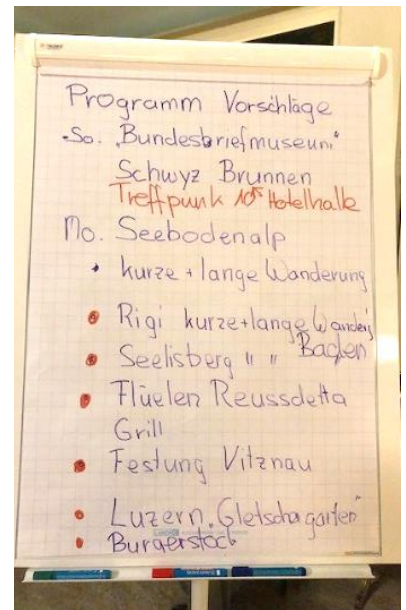 Programm Vorschläge
• So. „Bundesbriefmuseum“
Schwyz Brunnen
Treffpunk 10⁰⁵ Hotelhalle
Mo. Seebodenalp
• kurze + lange Wanderung
• Rigi kurze+lange Wander'g
• Seelisberg " " Baden
• Flüelen Reussdelta
Grill
• Festung Vitznau
• Luzern „Gletschagarten“
• Burgerstock